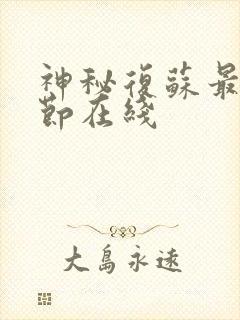 神秘復蘇最
節在綫
大島永遠